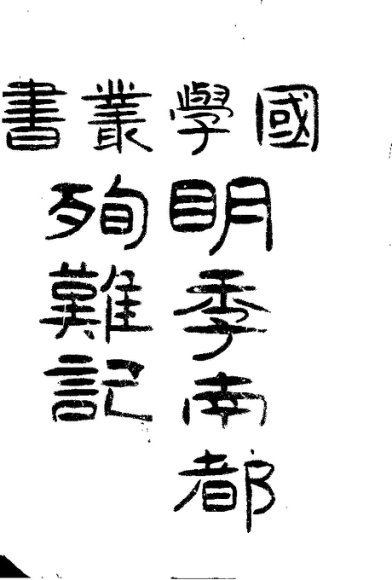 國學叢書
明季南都
殉難記